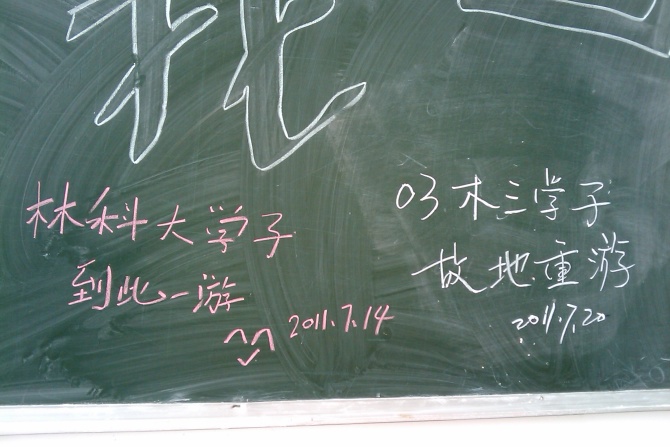 林科大学子
到此一游
2011.7.14
03木三学子
故地重游
2011.7.20